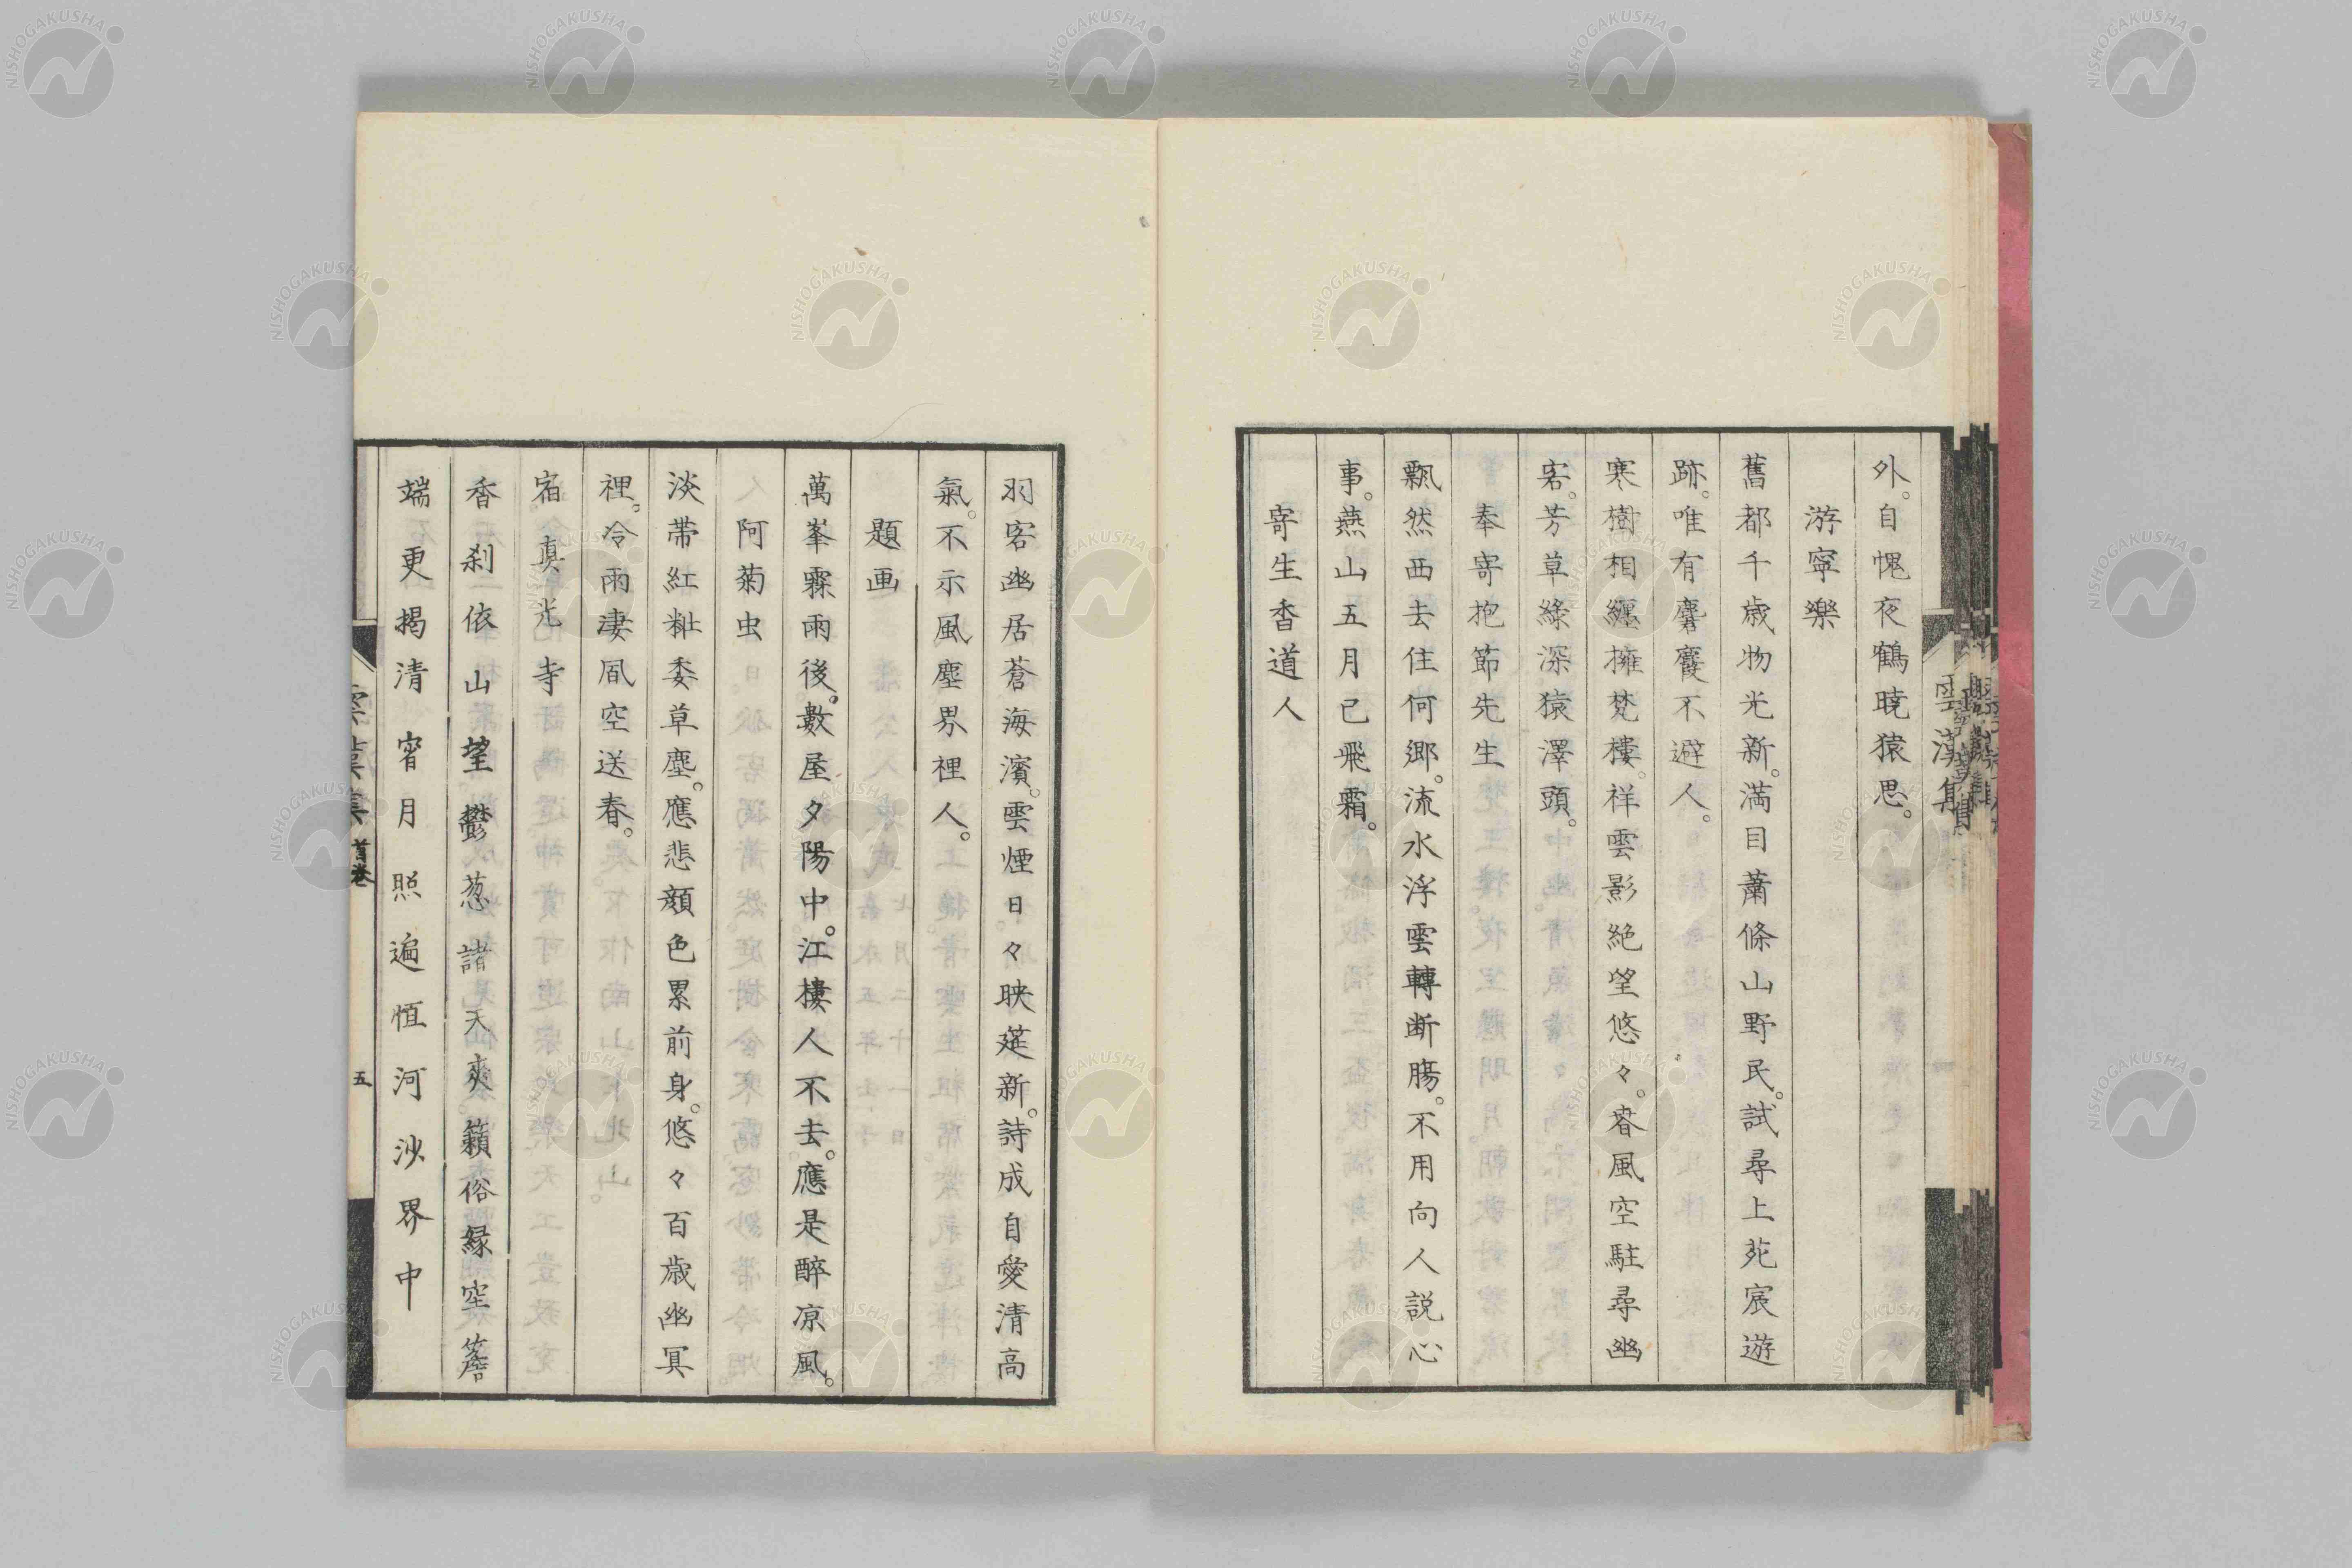 外。自愧夜鶴曉猿思。
游寧樂
舊都千歳物光新。満目蕭條山野民。試尋上苑宸遊
跡。唯有麏麚不避人。
寒樹相纏擁梵樓。祥雲影絶望悠々。春風空駐尋幽
客。芳草綠深猿澤頭。
奉寄抱節先生
飄然西去住何鄉。流水浮雲轉断膓。不用向人説心
事。燕山五月已飛霜。
寄生香道人
羽客幽居蒼海濱。雲煙日々映莚新。詩成自愛清高
氣。不示風塵界裡人。
題画
萬峯霖雨後。數屋夕陽中。江樓人不去。應是醉凉風。
阿菊虫
淡帶紅粧委草塵。應悲顔色累前身。悠々百歳幽冥
裡。冷雨凄風空送春。
宿真光寺
香刹依山望鬱葱諸天爽籟俗緑空簷
端更揭清宵月照遍恒河沙界中
雲漢集
首卷
五
雲漢集
NISHOGAKUSHA